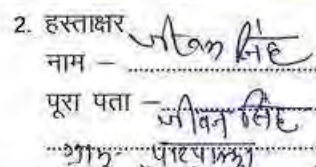 2. हस्ताक्षर जीवन सिंह
नाम –
पूरा पता – जीवन सिंह
ग्राम-